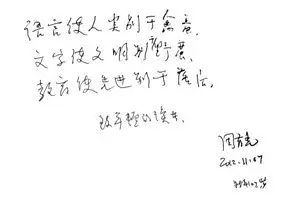 语言使人类别于禽兽，
文字使文明别于野蛮，
教育使先进别于落后。
致年轻的读者
周有光
2012.11.07
时年107岁